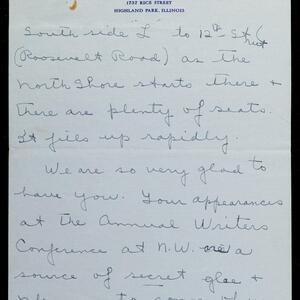 1757 RICE STREET
HIGHLAND PARK, ILLINOIS
South side "L" to 12th Street
(Roosevelt Road) as the
North Shore starts there &
there are plenty of seats.
It fills up rapidly.
We are so very glad to
have you. Your appearances
at the Annual Writers
Conference at N.W. are a
source of secret glee &